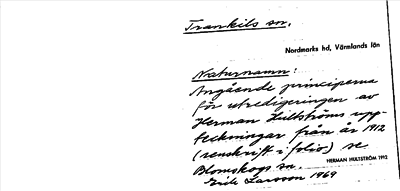 Trankils sn.
Nordmarks hd, Värmlands län
Naturnamn:
Angående principerna
för utredigeringen av
Herman Hultströms upp-
teckningar från år 1912
(renskrift i folio) se
Blomskogs sn.
HERMAN HULTSTRÖM 1912
Erik Larsson 1969